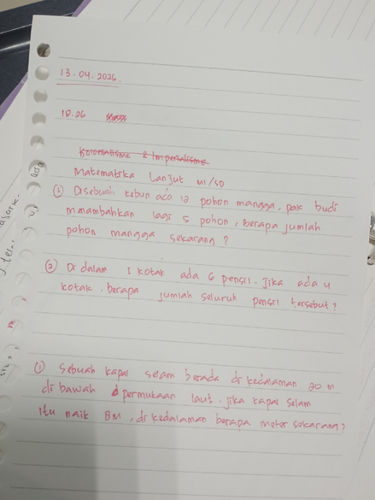 13.04.2026
10.26
Kolonialisme & Imperialisme
Matematika Lanjut MI/SD
① Disebuah kebun ada 12 pohon mangga. pak budi
menambahkan lagi 5 pohon, berapa jumlah
pohon mangga sekarang?
② Di dalam 1 kotak ada 6 pensil. Jika ada 4
kotak. berapa jumlah seluruh pensil tersebut?
① Sebuah kapal selam berada di kedalaman 20 m
di bawah permukaan laut. jika kapal selam
itu naik 8M, di kedalaman berapa meter sekarang?